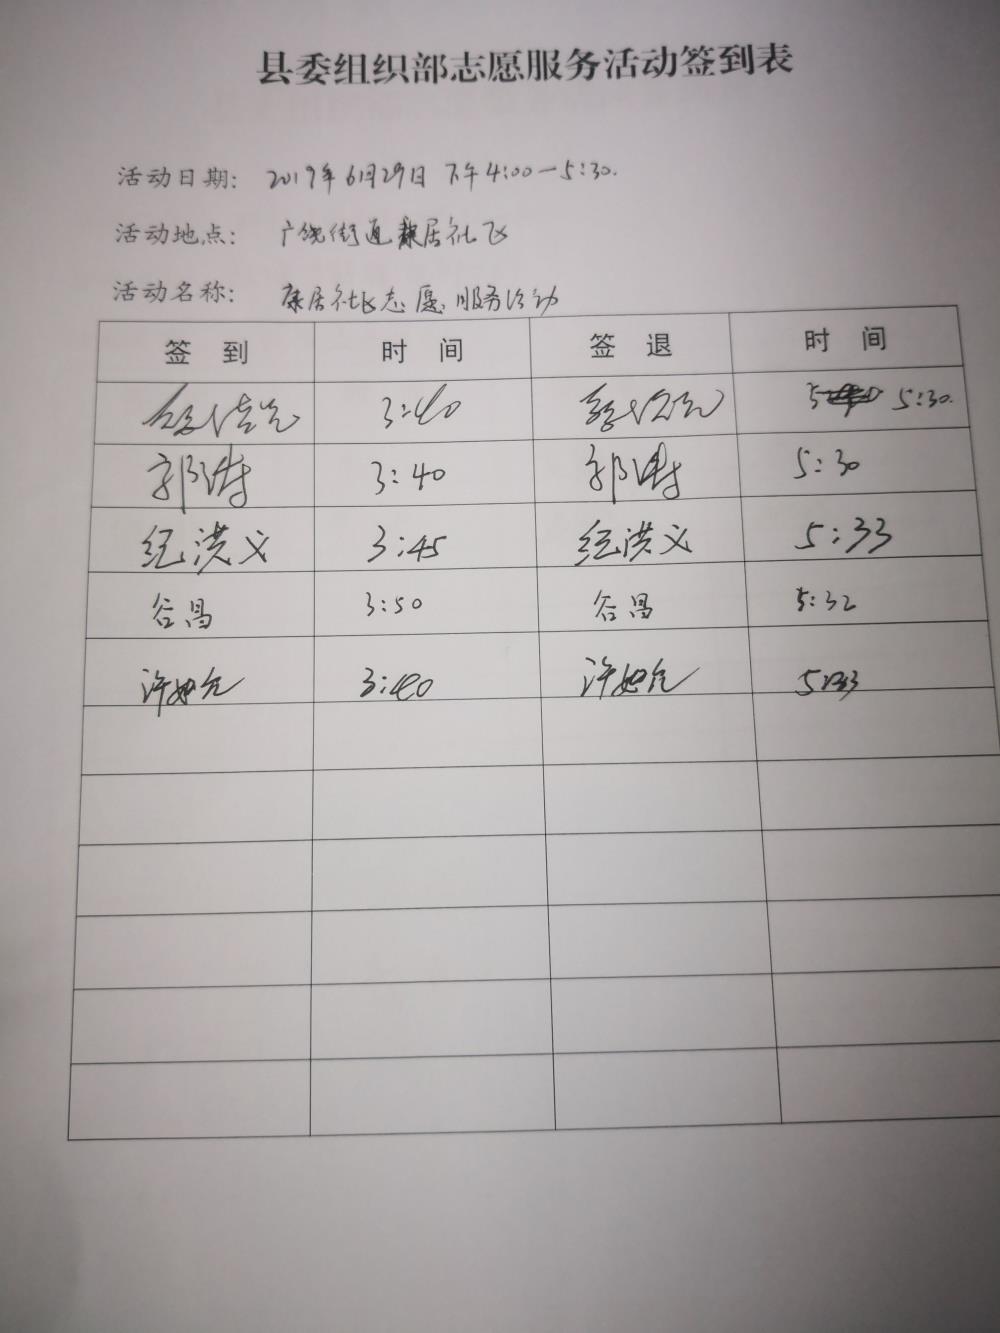 县委组织部志愿服务活动签到表
活动日期: 2019年6月29日 下午4:00—5:30.
活动地点: 广饶街道康居社区
活动名称: 康居社区志愿服务活动
签 到 时 间 签 退 时 间
3:40 5:30.
郭涛 3:40 郭涛 5:30
纪洪义 3:45 纪洪义 5:33
谷昌 3:50 谷昌 5:32
3:40 5:33